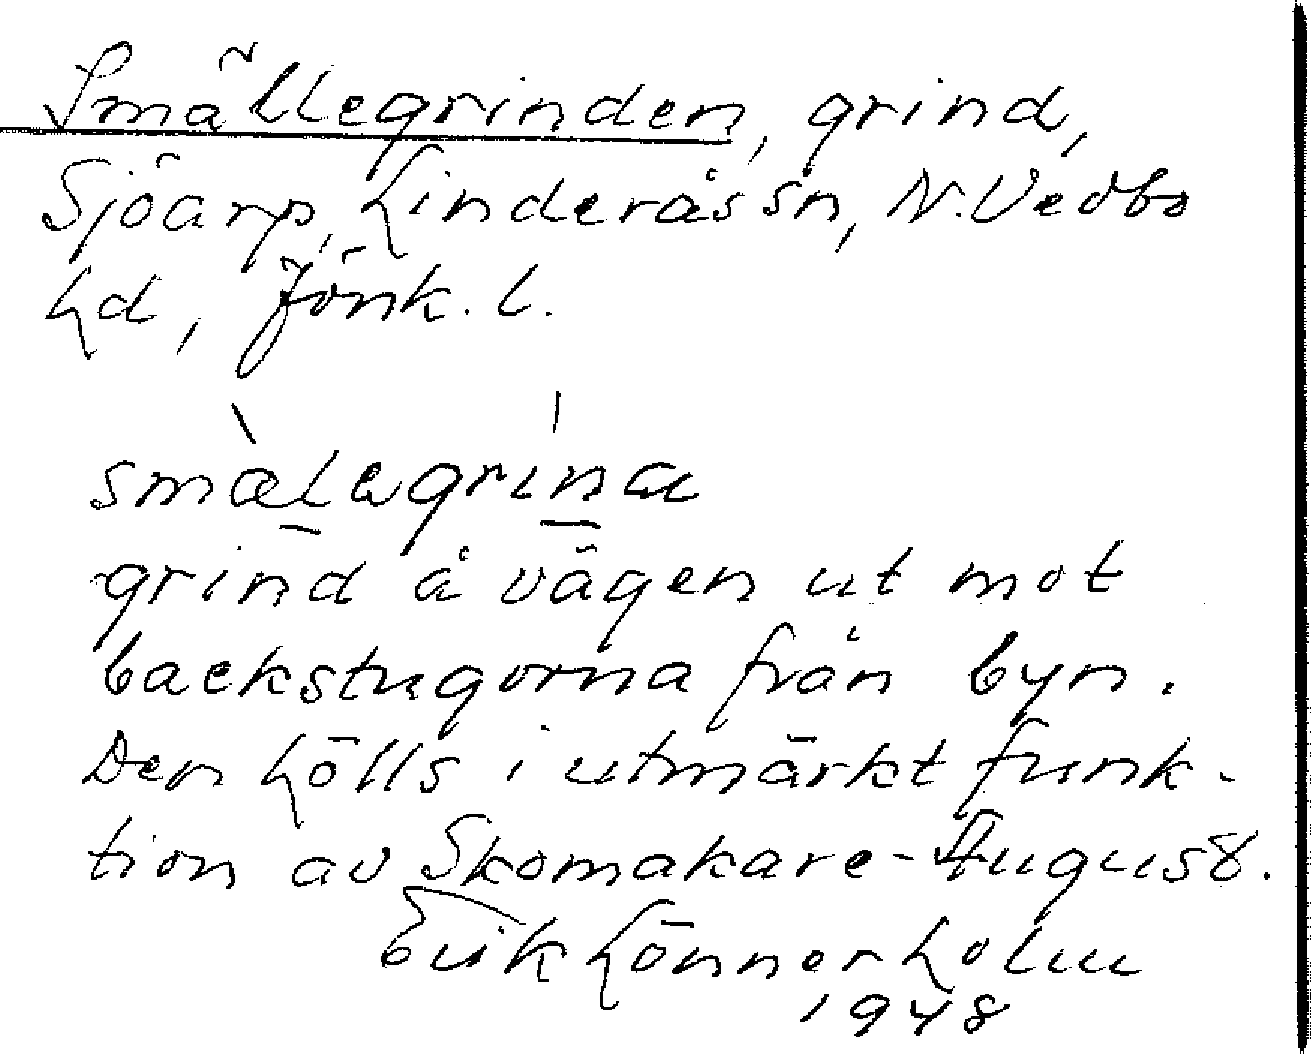 Smällegrinden, grind,
Sjöarp, Linderås sn, N. Vedbo
hd, Jönk. l.
smälagrina
grind å vägen ut mot
backstugorna från byn.
Den hölls i utmärkt funk-
tion av Skomakare-August.
Erik Lönnerholm
1948